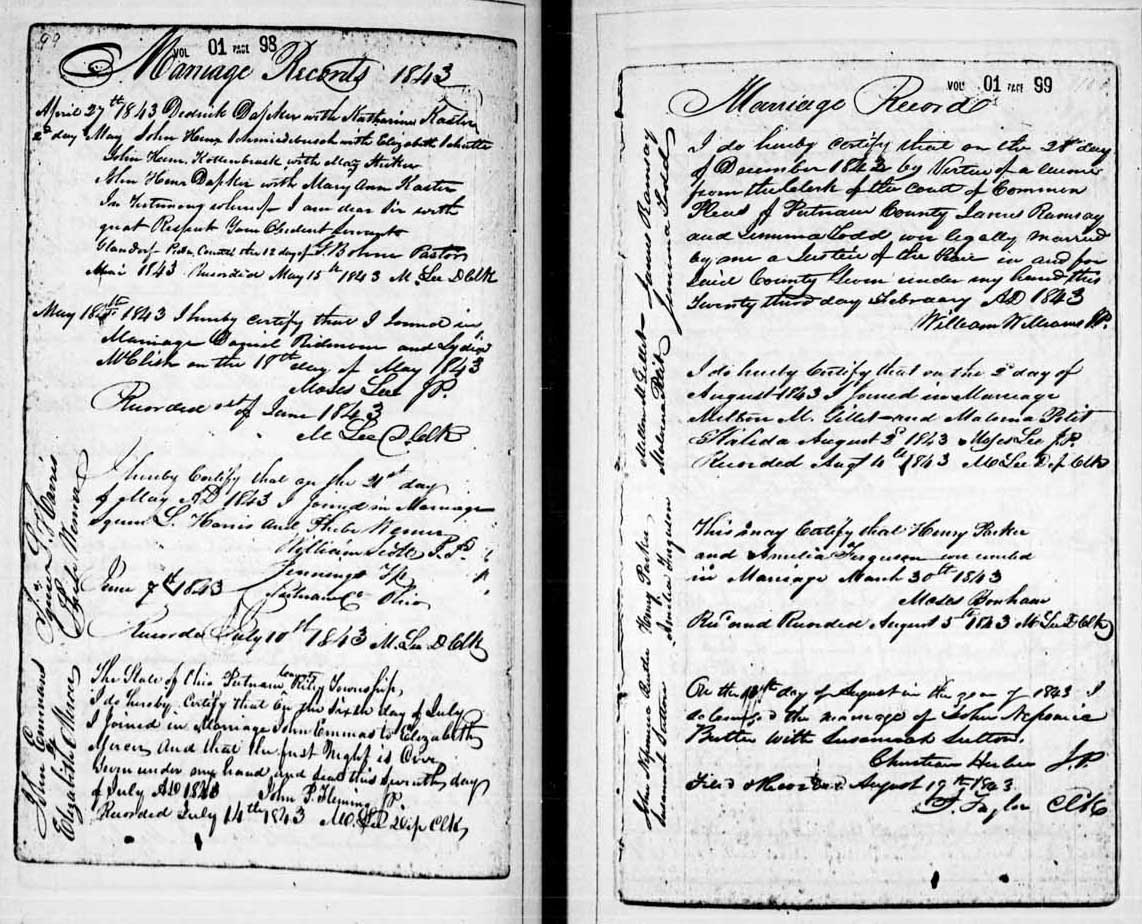 99
VOL 01 PAGE 98
Marriage Records 1843
April 27th 1843 Dedrick Dapker with Katharine Kaster
2d day May John Henr Schmiedebusch with Elizabeth Schutte
John Henr. Kottenbrack with Mary
John Henr Dapker with Mary Ann Kaster
In Testimony whereof I am dear Sir with
great Respect Your Obedient Servant
Glandorf Putn. County the 12 day of J Bohne Pastor
1843 Recorded May 15th 1843 M. Lee D Clk
May 18th 1843 I hereby certify that I Joined in
Marriage Daniel Ridenour and Lydia
McClish on the 18th day of May 1843
Moses Lee JP.
Recorded 1st of June 1843
M Lee D Clk
Squire L. Harris
&
Phebe Wenner
I hereby Certify that on the 21st day
of May AD 1843 I Joined in Marriage
Squire L. Harris and Phebe Wenner
William Scott J.P.
Jennings Tp
June 7th 1843 Putnam Co Ohio
Recorded July 10th 1843 M. Lee D Clk
John Emmans
&
Elizabeth Mercer
The State of Ohio Putnam County Riley Township,
I do hereby Certify that on the Sixth day of July
I Joined in Marriage John Emmas to Elizabeth
Mercer And that the first Night is Over
Given under my hand and seal this seventh day
of July AD 1843 John P. Fleming JP.
Recorded July 14th 1843 M. Lee Dep Clk
VOL 01 PAGE 99
Marriage Records
James Ramsay
Jemima Todd
I do hereby certify that on the 28th day
of December 1842 by Virtue of a licence
from the Clerk of the Court of Common
Pleas of Putnam County James Ramsay
and Jemima Todd were legally married
by me a Justice of the Peace in and for
said County Given under my hand this
Twenty third day February AD 1843
William Williams JP.
Milton M. Gillet
Malona Petit
I do hereby Certify that on the 2d day of
August 1843 I Joined in Marriage
Milton M. Gillet and Malona Petit
Kalida August 2d 1843 Moses Lee J.P.
Recorded Aug 4th 1843 M Lee Dep Clk
Henry Parker
Amelia Ferguson
This may Certify that Henry Parker
and Amelia Ferguson were united
in Marriage March 30th 1843
Moses Bonham
Recd and Recorded August 5th 1843 M Lee D Clk
John Nepomic Butter
Susannah Sutton
On the day of August in the year of 1843 I
solemnised the marriage of John Nepomic
Butter with Susannah Sutton.
Christian Herber J.P
Filed & Recorded August 19th 1843.
Taylor Clk